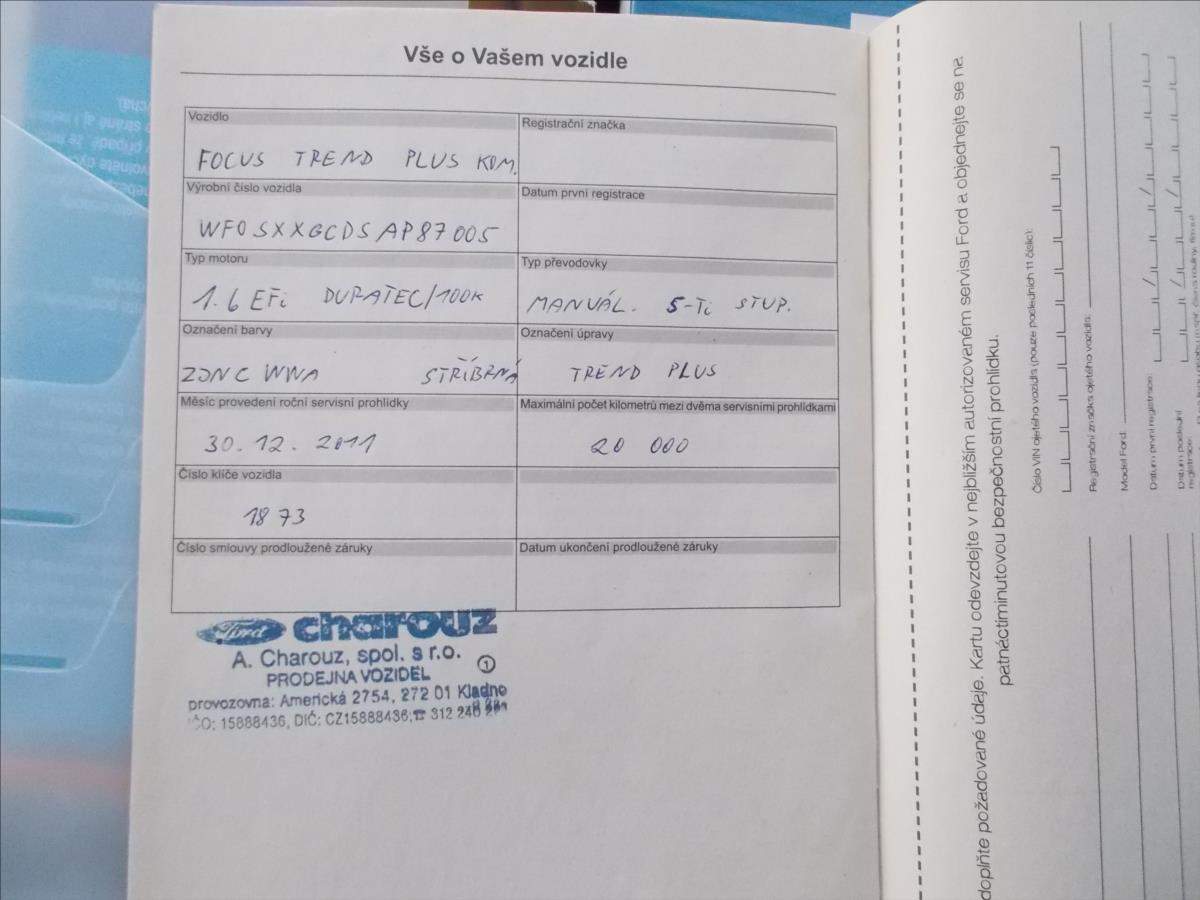 Vše o Vašem vozidle
Vozidlo
FOCUS TREND PLUS KOM.
Registrační značka
Výrobní číslo vozidla
WF0SXXGCDSAP87005
Datum první registrace
Typ motoru
1.6 EFi DURATEC/100K
Typ převodovky
MANUÁL. 5-Ti STUP.
Označení barvy
ZJNC WWA STŘÍBRNÁ
Označení úpravy
TREND PLUS
Měsíc provedení roční servisní prohlídky
30.12.2011
Maximální počet kilometrů mezi dvěma servisními prohlídkami
20 000
Číslo klíče vozidla
1873
Číslo smlouvy prodloužené záruky
Datum ukončení prodloužené záruky
Ford charouz
A. Charouz, spol. s r.o.
1
PRODEJNA VOZIDEL
provozovna: Americká 2754, 272 01 Kladno
IČO: 15888436, DIČ: CZ15888436, ☎ 312 240
doplňte požadované údaje. Kartu odevzdejte v nejbližším autorizovaném servisu Ford a objednejte se na
patnáctiminutovou bezpečnostní prohlídku.
Číslo VIN ojetého vozidla (pouze posledních 11 číslic):
Registrační značka ojetého vozidla:
Model Ford:
Datum první registrace:
Datum poslední
registrace: